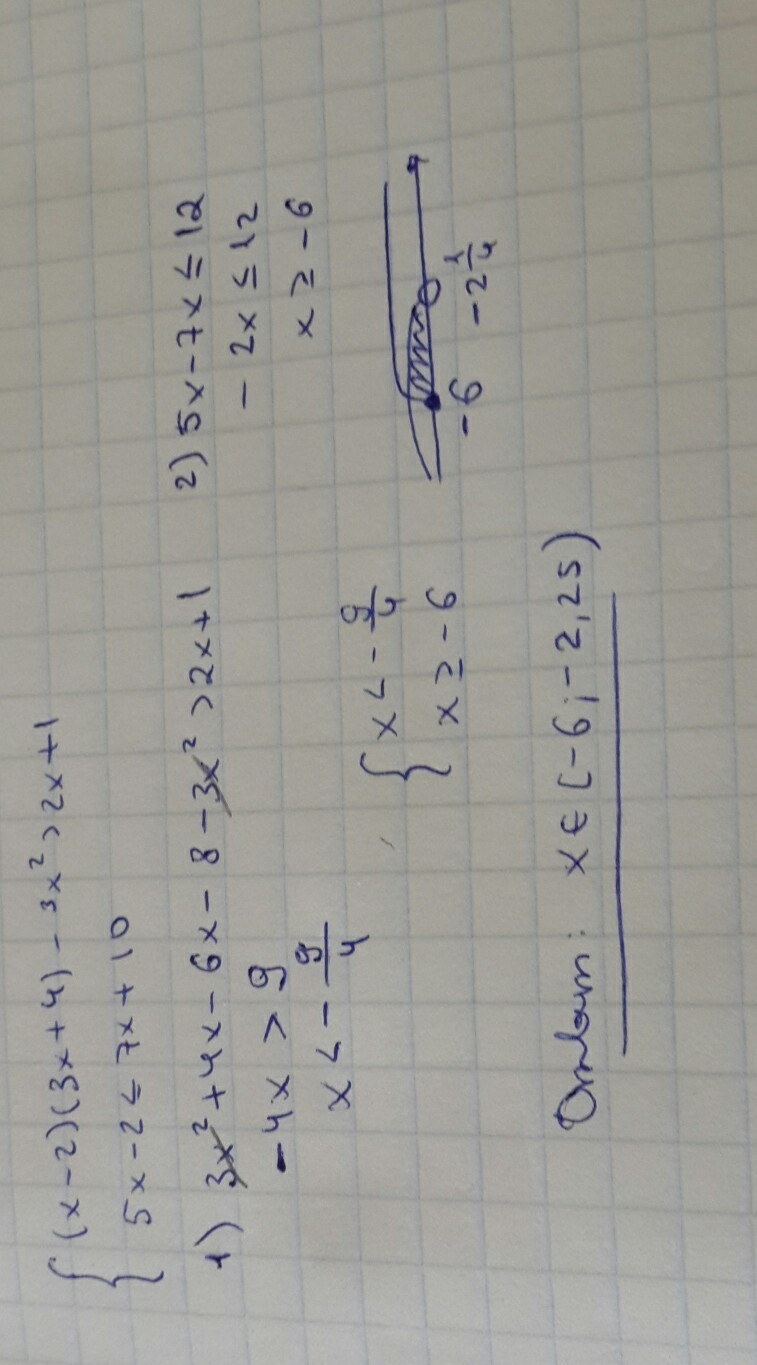 { (x-2)(3x+4)-3x²>2x+1
5x-2≤7x+10
1) 3x²+4x-6x-8-3x²>2x+1
-4x>9
x<-9/4
2) 5x-7x≤12
-2x≤12
x≥-6
{ x<-9/4
x≥-6
-6 -2 1/4
Ответ: x∈[-6;-2,25)